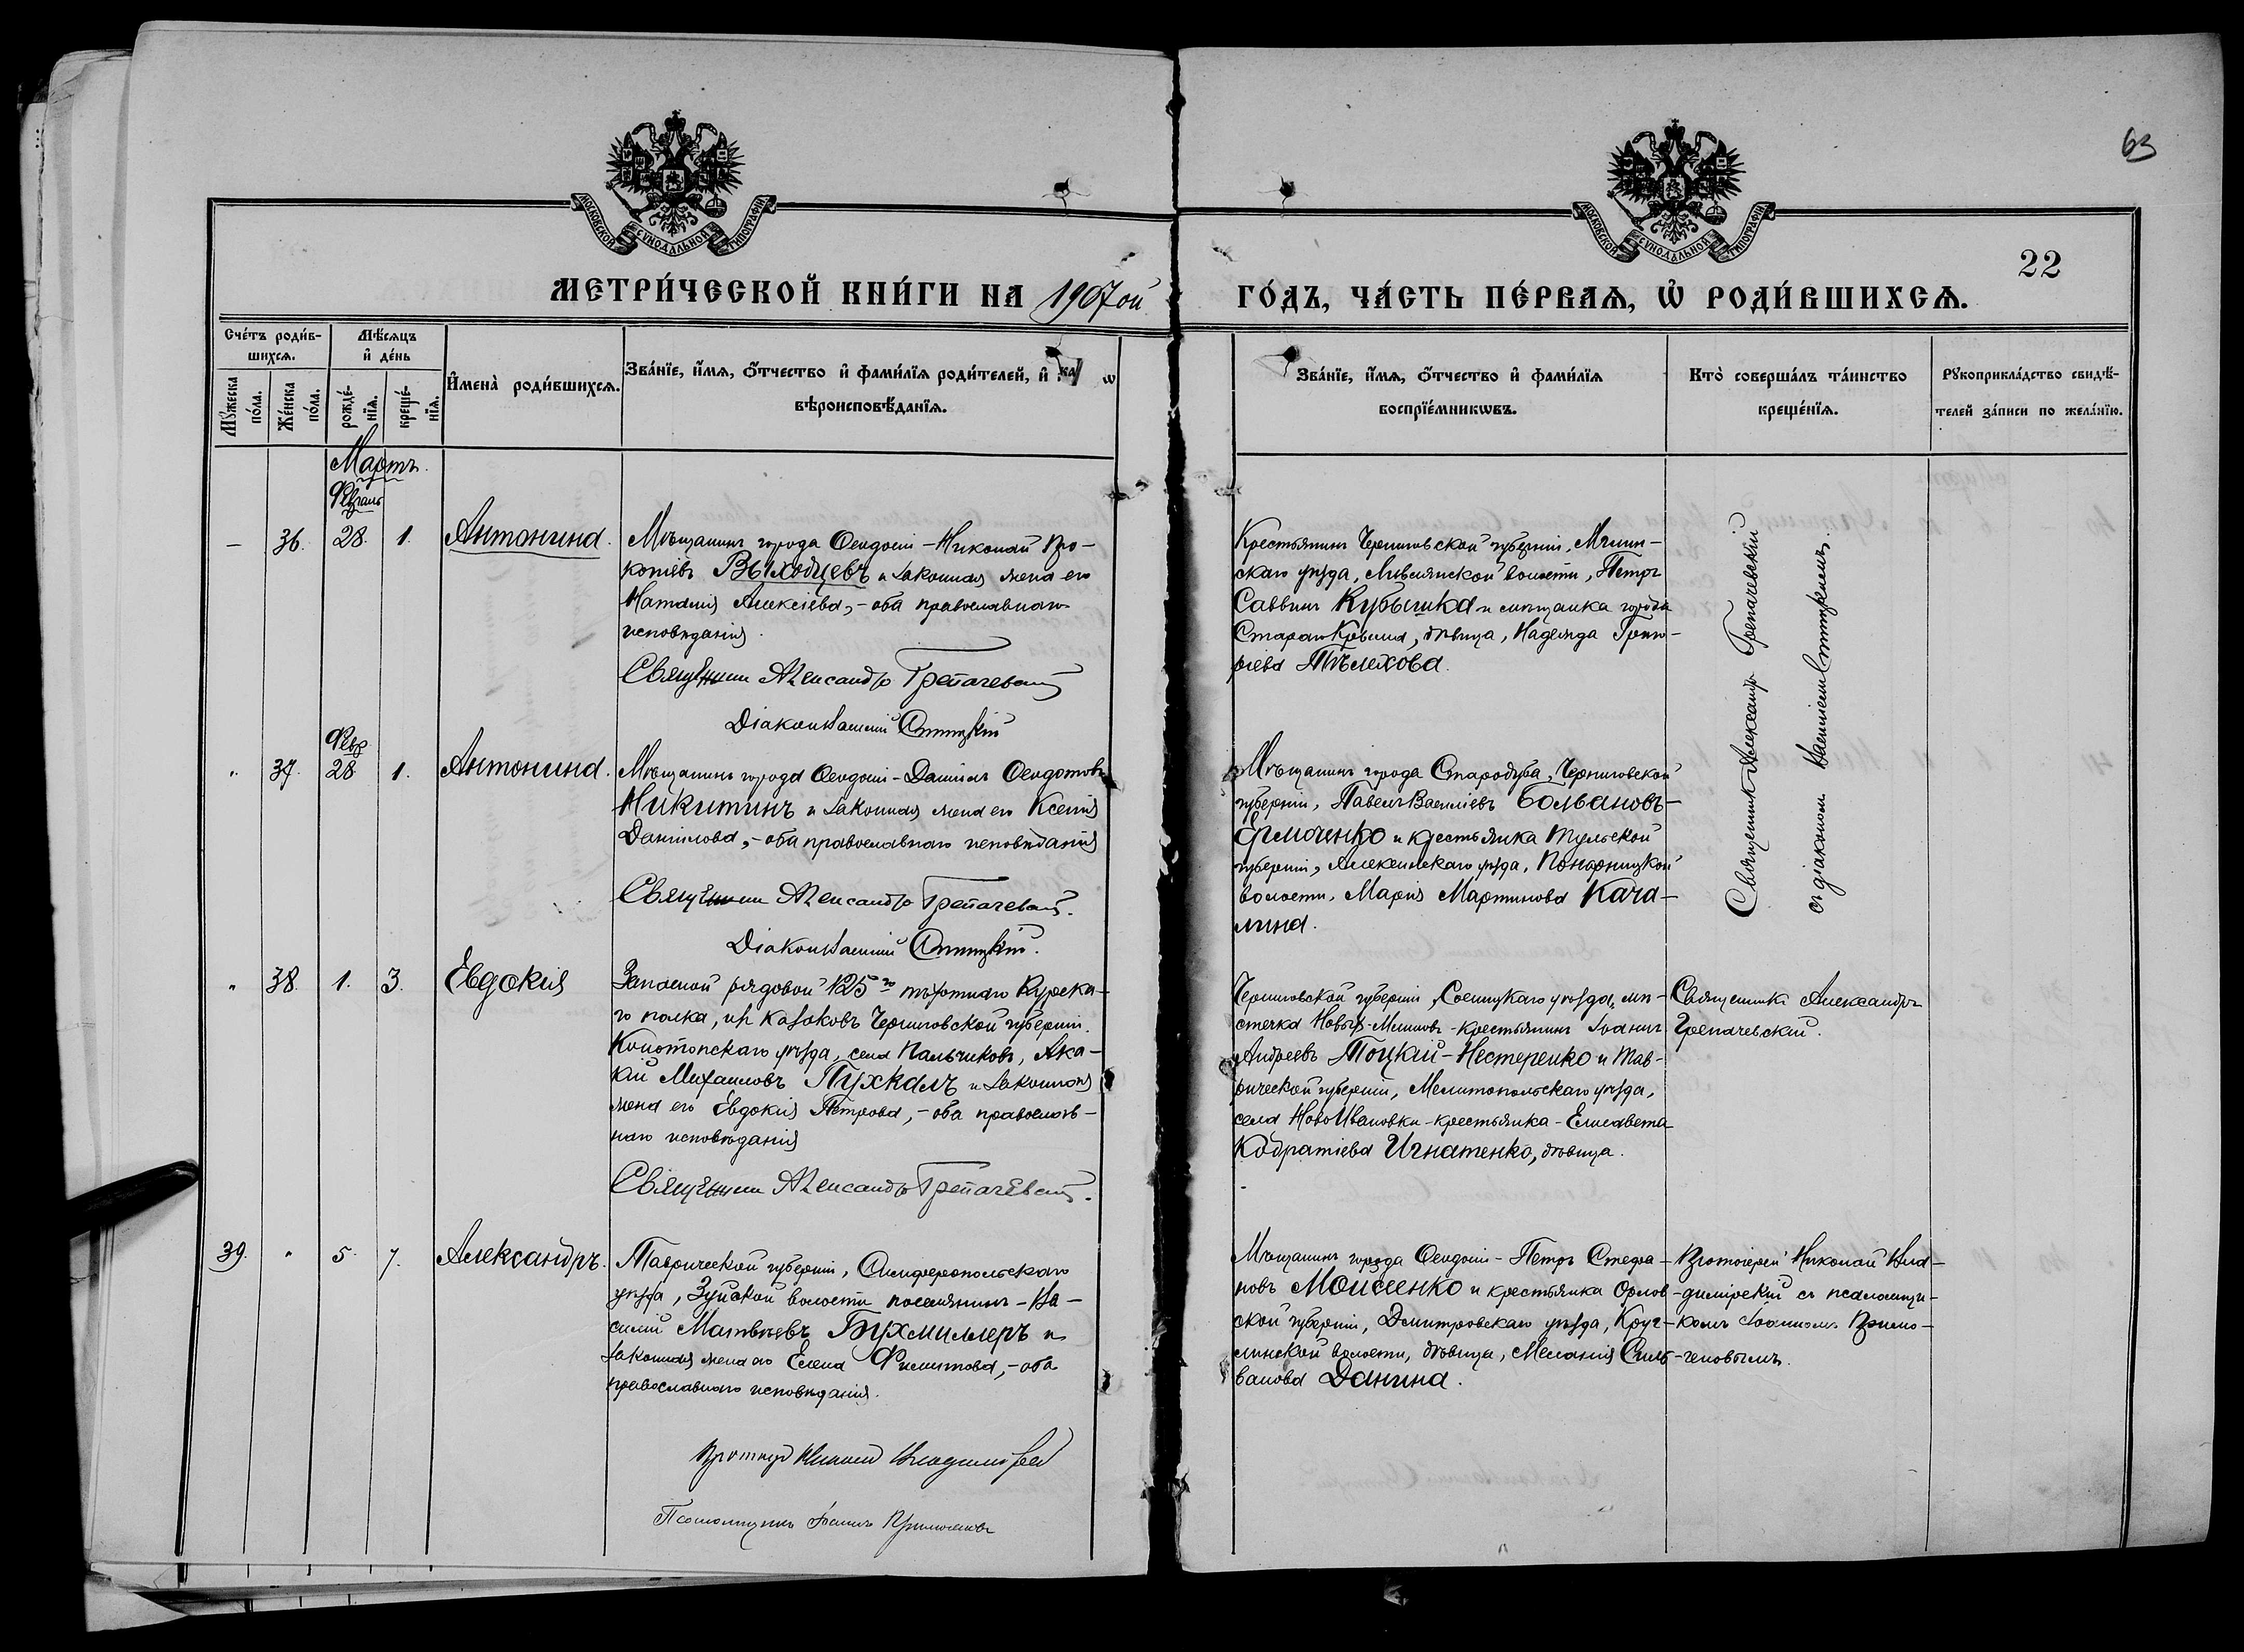 63
МОСКОВСКОЙ СУНОДАЛЬНОЙ ТИПОГРАФІИ
МОСКОВСКОЙ СУНОДАЛЬНОЙ ТИПОГРАФІИ
22
МЕТРИ́ЧЕСКОЙ КНИ́ГИ НА 1907ой ГО́ДЪ, ЧА́СТЬ ПЕ́РВАѦ, Ѡ РОДИ́ВШИХСѦ.
Сче́тъ роди́в-
шихсѧ.
Мꙋ́жеска по́ла.
Же́нска по́ла.
Мѣ́сѧцъ
и де́нь
рожде́-нїѧ.
креще́-нїѧ.
И҆мена̀ роди́вшихсѧ.
Зва́нїе, и҆́мѧ, ѻ҆́тчество и҆ фами́лїѧ роди́телей, и҆ ка ѡ
вѣроисповѣ́данїѧ.
Зва́нїе, и҆́мѧ, ѻ҆́тчество и҆ фами́лїѧ
воспрїе́мникѡвъ.
Кто̀ соверша́лъ та́инство
креще́нїѧ.
Рꙋкоприкла́дство свидѣ́-
телей за́писи по жела́нїю.
Мартъ.
Февраль
– 36. 28. 1. Антонина.
Мѣщанинъ города Ѳеодосіи – Николай Про-
копіевъ Выходцевъ и законная жена его
Наталія Алексіева, – оба православнаго
исповѣданія.
Священникъ Александръ Грепачевскій
Діаконъ Василій
Крестьянинъ Черниговской губерніи, Мглин-
скаго уѣзда, волости, Петръ
Саввинъ Кубышка и мѣщанка города
Стараго Крыма, дѣвица, Надежда Григо-
рієва Тѣлехова.
Священникъ Александръ Грепачевскій
съ діакономъ Василіемъ
Февр
" 37. 28 1. Антонина.
Мѣщанинъ города Ѳеодосіи – Даніилъ Ѳеодотовъ
Никитинъ и законная жена его Ксенія
Даніилова, – оба православнаго исповѣданія
Священникъ Александръ Грепачевскій.
Діаконъ Василій
Мѣщанинъ города Стародуба, Черниговской
губерніи, Павелъ Василіевъ Болвановъ-
Ермоченко и крестьянка Тульской
губерніи, Алексинскаго уѣзда,
волости, Марія Мартинова Кача-
лина.
" 38. 1. 3. Евдокія
Запасной рядовой 125го пѣхотнаго Курска-
го полка, изъ казаковъ Черниговской губерніи.
Конотопскаго уѣзда, села Пальчиковъ, Ака-
кій Михаиловъ Пухкалъ и законная
жена его Евдокія Петрова, – оба православ-
наго исповѣданія
Священникъ Александръ Грепачевскій.
Черниговской губерніи, Сосницкаго уѣзда, мѣ-
стечка Новыхъ-Млиновъ – крестьянинъ Іоаннъ
Андреевъ Тоцкій-Нестеренко и Тав-
рической губерніи, Мелитопольскаго уѣзда,
села НовоИвановки – крестьянка – Елисавета
Кодратіева Игнатенко, дѣвица.
Священникъ Александръ
Грепачевскій.
39. " 5. 7. Александръ.
Таврической губерніи, Симферопольскаго
уѣзда, Зуйской волости поселянинъ – Ва-
силій Матвѣевъ Бухмиллеръ и
законная жена его Елена Филиппова, – оба
православнаго исповѣданія.
Протоіерей Николай Владимірскій
Псаломщикъ Іоаннъ Примоченовъ
Мѣщанинъ города Ѳеодосіи – Петръ Стефа-
новъ Моисеенко и крестьянка Орлов-
ской губерніи, Дмитровскаго уѣзда, Круг-
линской волости, дѣвица, Меланія Силь-
ванова Данина.
Протоіерей Николай Вла-
димірскій съ псаломщи-
комъ Іоанномъ Примо-
ченовымъ.